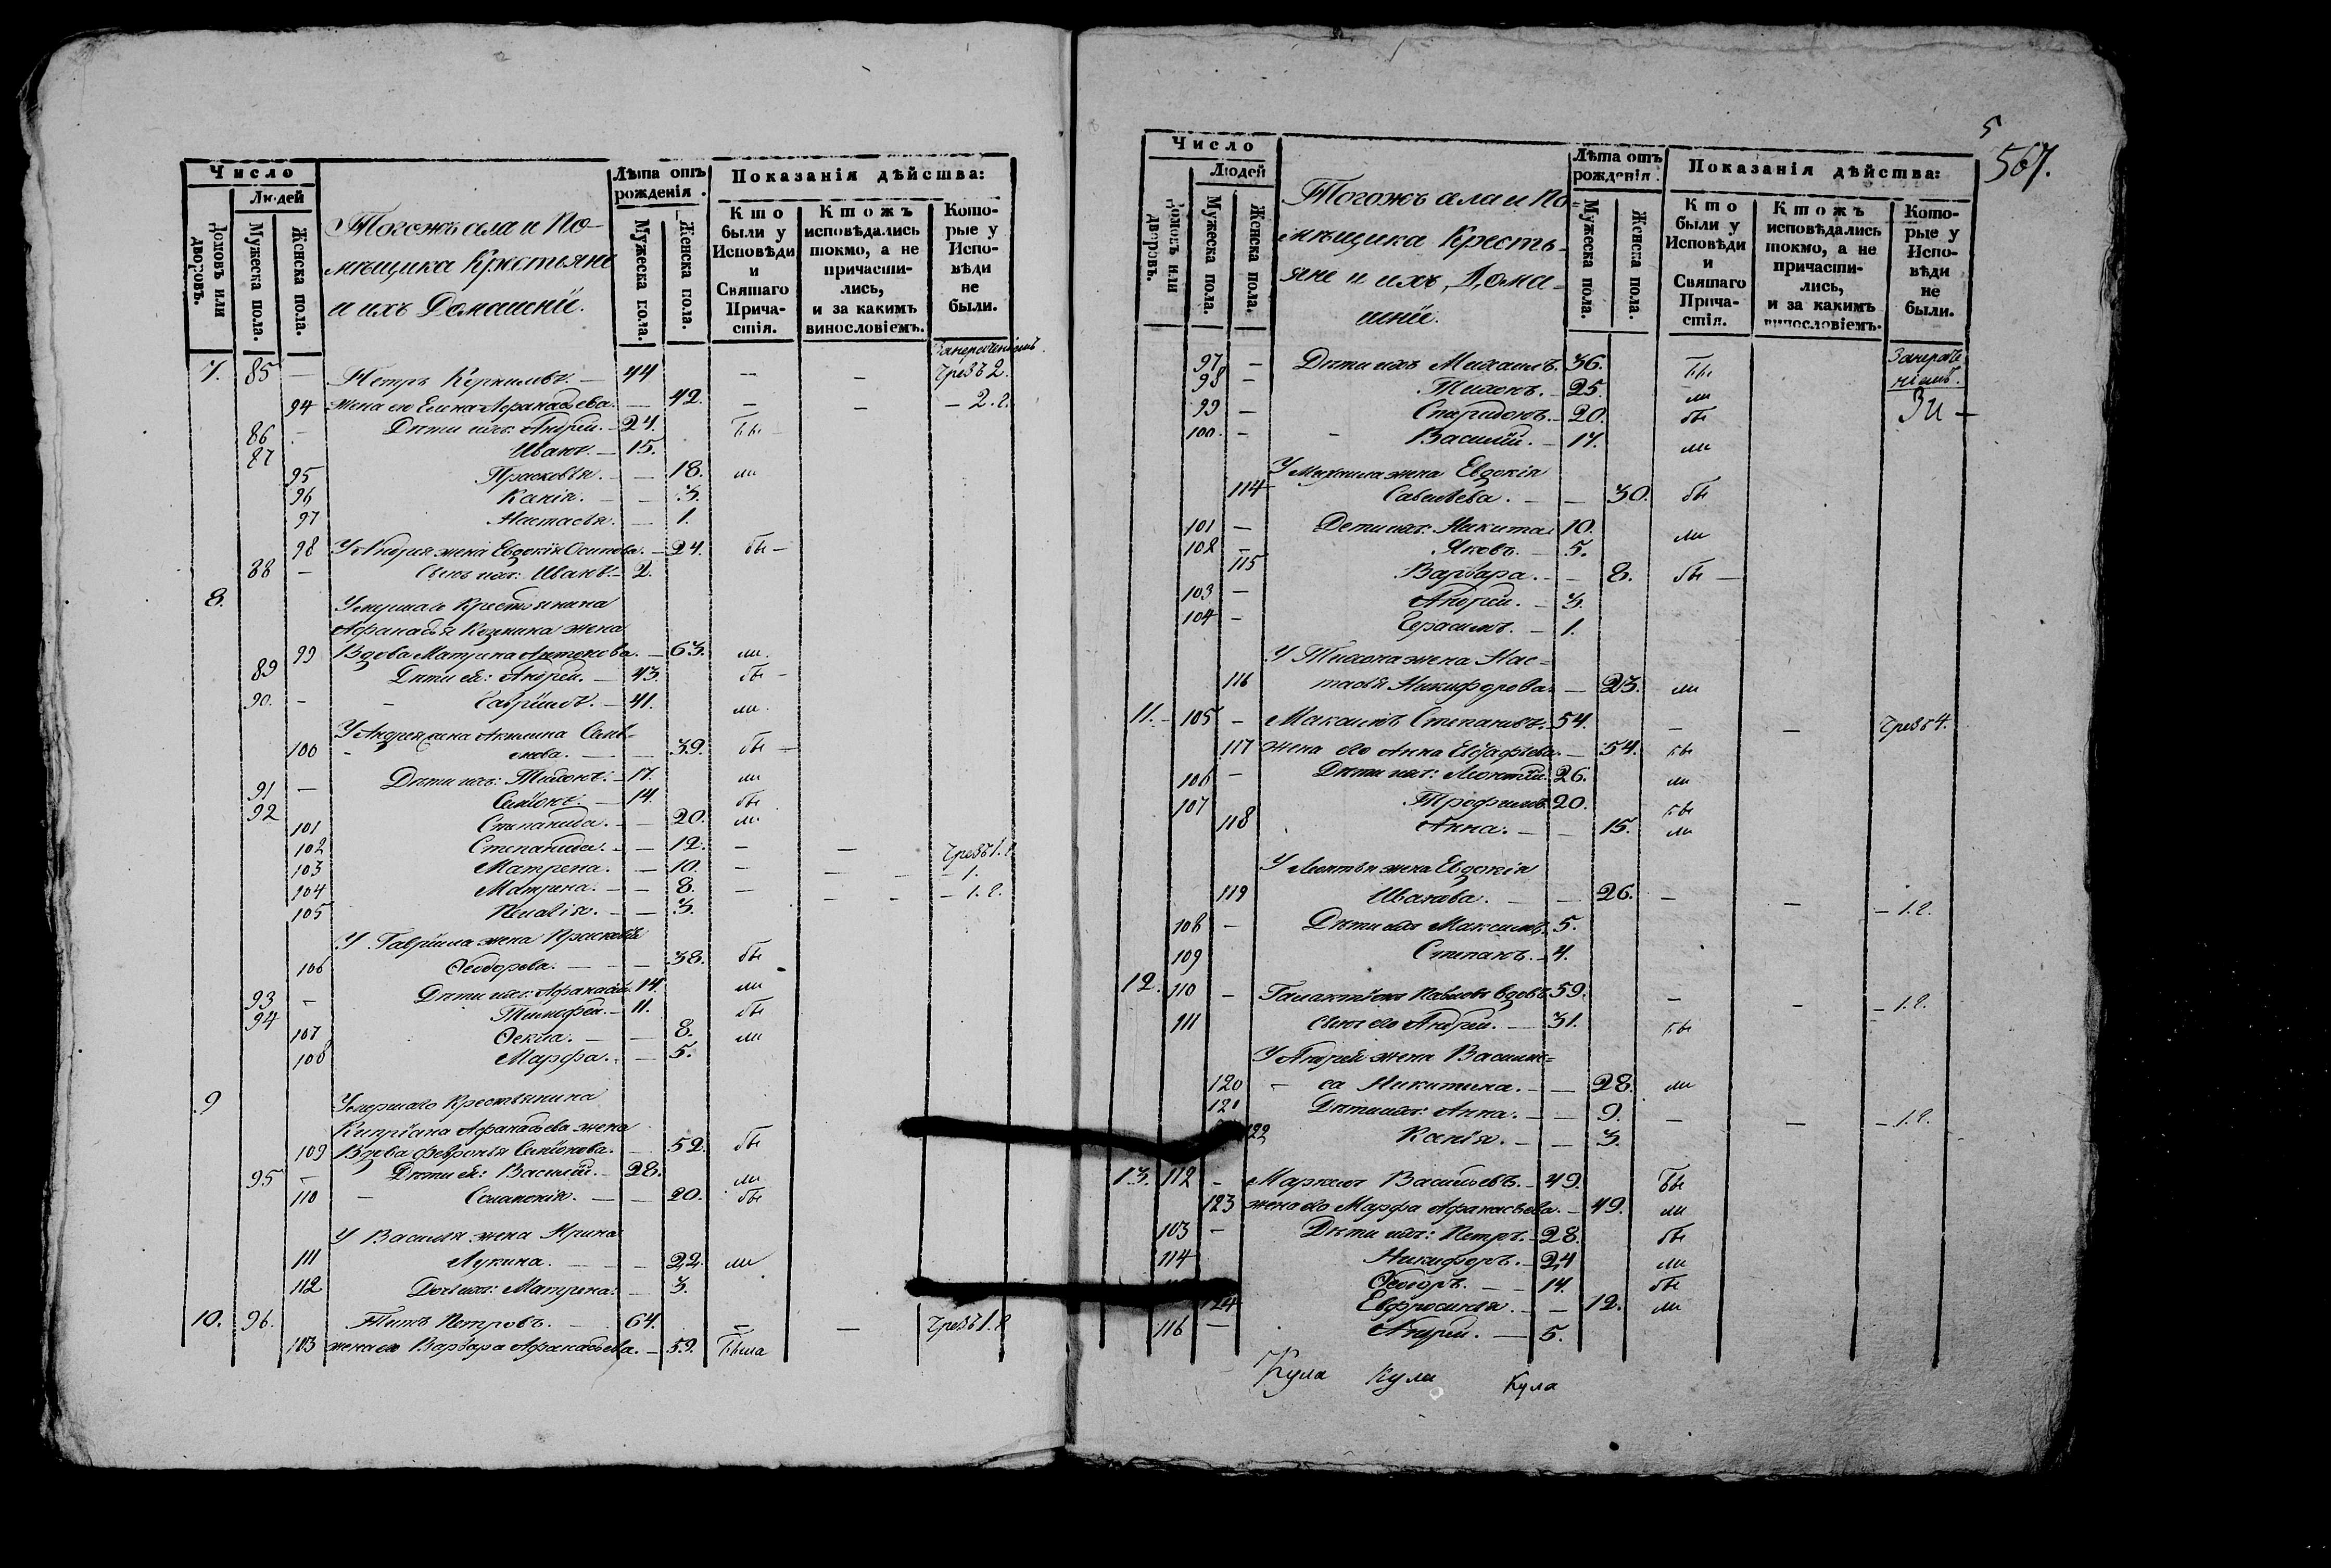 Число
Людей
Домовъ или дворовъ.
Мужеска пола.
Женска пола.
Тогожъ села и По-
мѣщика Крестьяне
и ихъ Домашніе.
Лѣта отъ рожденія.
Мужеска пола.
Женска пола.
Показанія дѣйства:
Кто были у Исповѣди и Святаго Причастія.
Ктожъ исповѣдались токмо, а не причастились, и за какимъ винословіемъ.
Которые у Исповѣди не были.
7. 85 — Петръ 44 — — Чрезъ 2.
94 жена его Елена Афанасьева. — 42. — — — 2. г.
86 — Дѣти ихъ: Андрей. — 24. бы —
87 Иванъ. — 15.
95 Прасковья. — — 18. ли
96 Ксенія. — — 3.
97 Настасья. — 1.
98 У Андрея жена Евдокія Осипова. — 24. бы —
88 — Сынъ ихъ: Иванъ. — 2.
8. Умершаго Крестьянина
Афанасья Козмина жена
99 Вдова Матрена Антонова. — 63. ли.
89 Дѣти ея: Андрей. — 43. бы —
90. — — Гавріилъ. — 41. ли.
У Андрея жена Акилина Семе-
100 — нова. — — 39. бы —
91 — Дѣти ихъ: Тихонъ. — 17. ли
92 Симіонъ. — 14. бы
101 Степанида. — — 20. ли
102 Степанида. — — 12. — — Чрезъ 1. г.
103 Матрена. — 10. — — — 1.
104 Матрена. — — 8. — — — — 1. г.
105 — — 3.
У Гавріила жена Прасковья
106 Ѳеодорова. — — — 38. бы
93 — Дѣти ихъ: Афанасій. 14. ли
94 Тимофей. — 11. бы
107 Ѳекла. — — 8. ли
108 Марфа. — — 5.
9 Умершаго Крестьянина
Кипріана Афанасьева жена
109 Вдова Февронья Симіонова. — 52. бы
95 — Дѣти ея: Василій. — 28. ли
110 — Соломонія. — — 20. бы
У Василья жена Ирина
111 Лукина. — — — 22. ли
112 Дочь ихъ: Матрена. — 3.
10. 96. Титъ Петровъ. — 64. — — Чрезъ 1. г.
103 жена его Варвара Афанасьева. — 59. Была
5
567.
Число
Людей
Домовъ или дворовъ.
Мужеска пола.
Женска пола.
Тогожъ села и По-
мѣщика Кресть-
яне и ихъ Дома-
шніе.
Лѣта отъ рожденія.
Мужеска пола.
Женска пола.
Показанія дѣйства:
Кто были у Исповѣди и Святаго Причастія.
Ктожъ исповѣдались токмо, а не причастились, и за какимъ винословіемъ.
Которые у Исповѣди не были.
97 — Дѣти ихъ Михаилъ. 36. бы
98 — Тихонъ. — 25. ли
99 — Спиридонъ. — 20. бы
100. — — Василій. — 17. ли
У Михаила жена Евдокія
114 Савельева. — — 30. бы
101 — Дети ихъ: Никита 10. ли
102 — Яковъ. — 5.
115 Варвара. — — 8. бы —
103 — Андрей. — 3.
104 — Герасимъ. — 1.
У Тихона жена Нас-
116 тасья Никифорова. — 23. ли
11. — 105 — Максимъ Степановъ. — 54. — — Чрезъ 4.
117 жена его Анна — 54. бы
106 — Дѣти ихъ: Леонтій 26. ли
107 Трофимъ. 20. бы
118 Анна. — — 15. ли
У Леонтья жена Евдокія
119 Иванова. — — 26. — — — 1. г.
108 — Дѣти ихъ Максимъ. 5.
109 Степанъ. — 4.
12. 110 — Галактіонъ Павловъ вдовъ. 59. — — — 1. г.
111 сынъ его Андрей. — 31. бы
У Андрея жена Васили-
120 — са Никитина. — — 28. ли
121 Дѣти ихъ: Анна. — — 9. — — — 1. г.
122 Ксенія. — — 3.
13. 112 — Васильевъ. — 49. бы
123 жена его Марфа Афанасьева. — 49. ли
103 — Дѣти ихъ: Петръ. — 28. бы
114 Никифоръ. — 24 ли
Ѳеодоръ. — — 14. бы
124 Евфросинія. — — 12. ли
116 — Андрей. — 5.
Кула Кула Кула